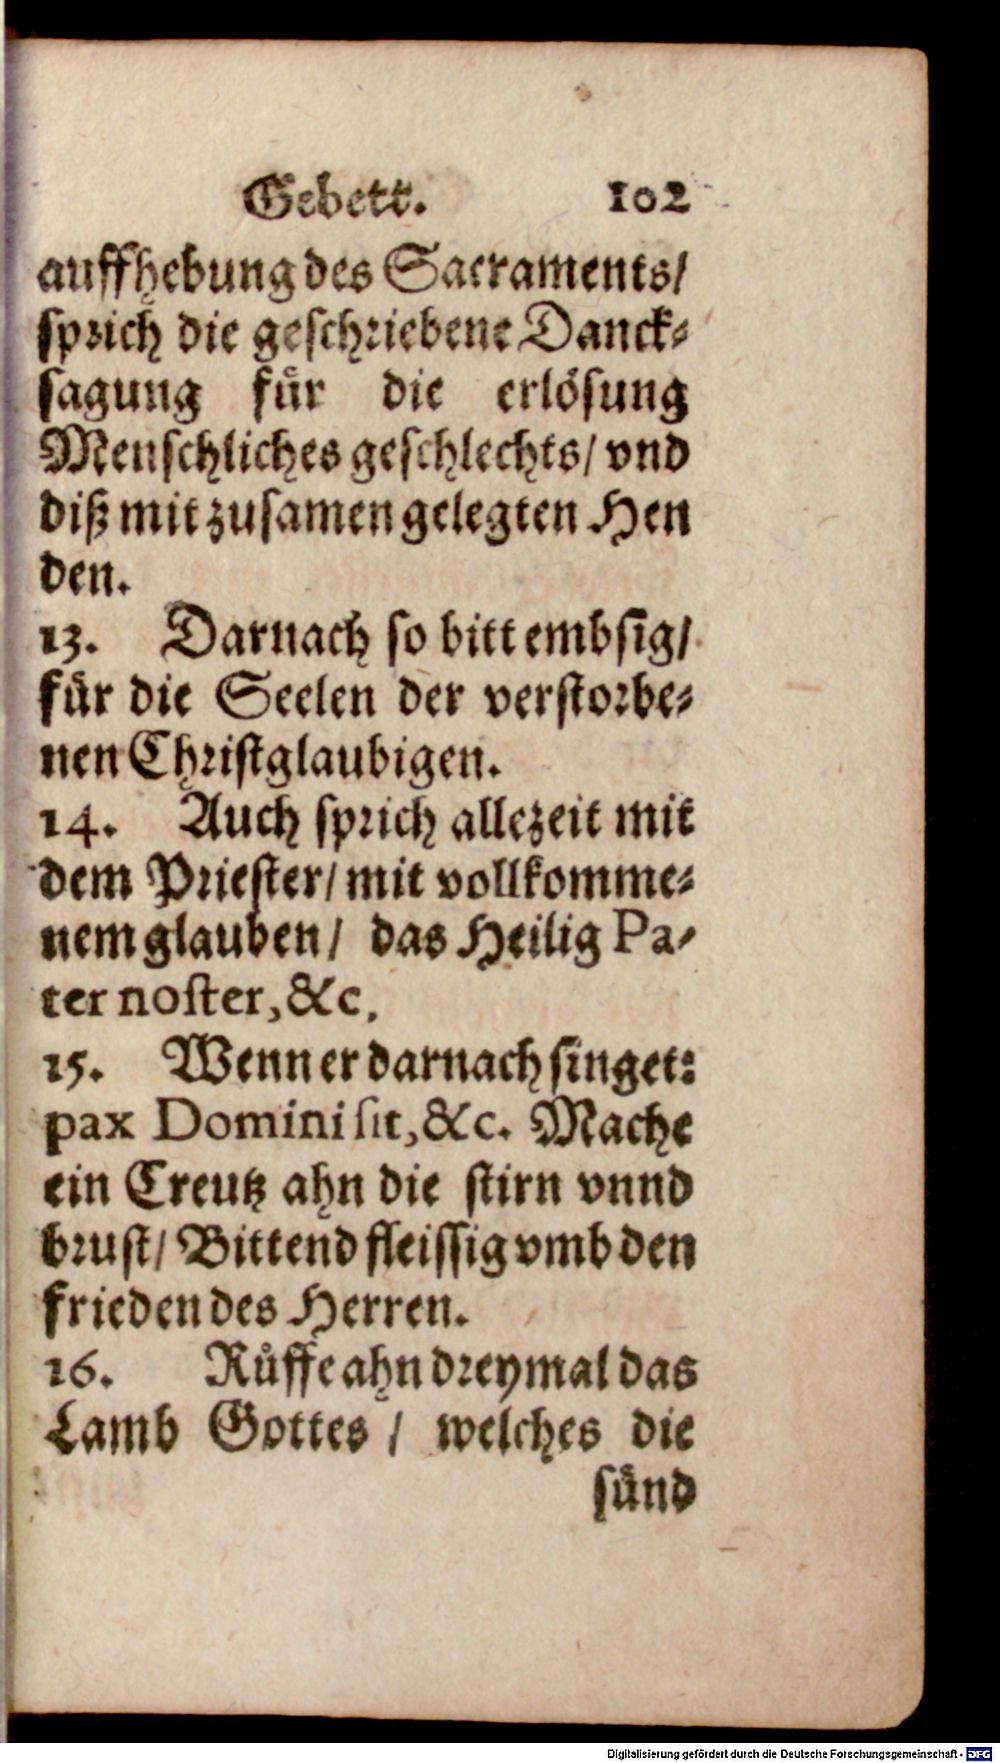 Gebett. 102
auffhebung des Sacraments/
sprich die geschriebene Danck-
sagung für die erlösung
Menschliches geschlechts/ vnd
diß mit zusamen gelegten Hen
den.
13. Darnach so bitt embsig/
für die Seelen der verstorbe-
nen Christglaubigen.
14. Auch sprich allezeit mit
dem Priester/ mit vollkomme-
nem glauben/ das Heilig Pa-
ter noster, &c.
15. Wenn er darnach singet:
pax Domini sit, &c. Mache
ein Creutz ahn die stirn vnnd
brust/ Bittend fleissig vmb den
frieden des Herren.
16. Růffe ahn dreymal das
Lamb Gottes / welches die
sünd
Digitalisierung gefördert durch die Deutsche Forschungsgemeinschaft - DFG